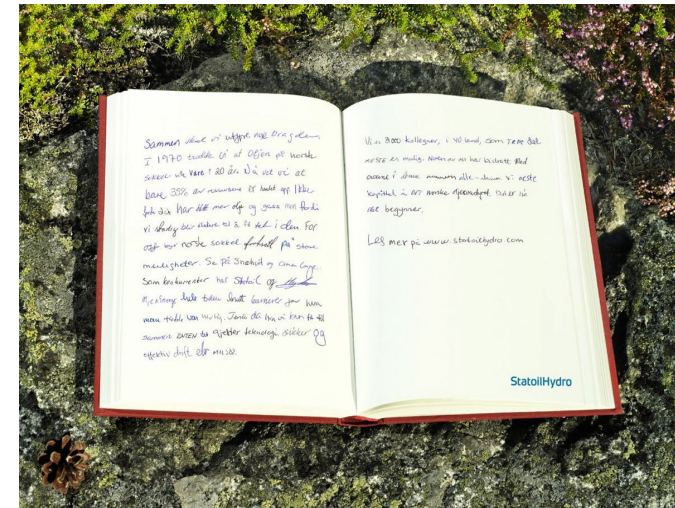 Sammen skal vi utgjøre nye
I 1970 trodde vi at Oljen på norsk
sokkel ville vare i 20 år. Nå vet vi at
bare 35% av ressursene er hentet opp. Ikke
fordi det har blitt mer olje og gass men fordi
vi stadig blir flinkere til å få tak i den. For
oss byr norsk sokkel fortsatt på store
muligheter. Se på Snøhvit og Ormen Lange.
Som konkurrenter har Statoil og Hydro
hele tiden brutt barrierer for hva
man trodde var mulig. Tenk da hva vi kan få til
sammen. Enten det gjelder teknologi, sikker og
effektiv drift eller miljø.
Vi er kollegaer, i 40 land, som tror det
meste er mulig. Noen av oss har bidratt med
i denne annonsen alle skriver vi neste
kapittel i det norske oljeeventyret. Det er nå
det begynner.
Les mer på www.statoilhydro.com
StatoilHydro